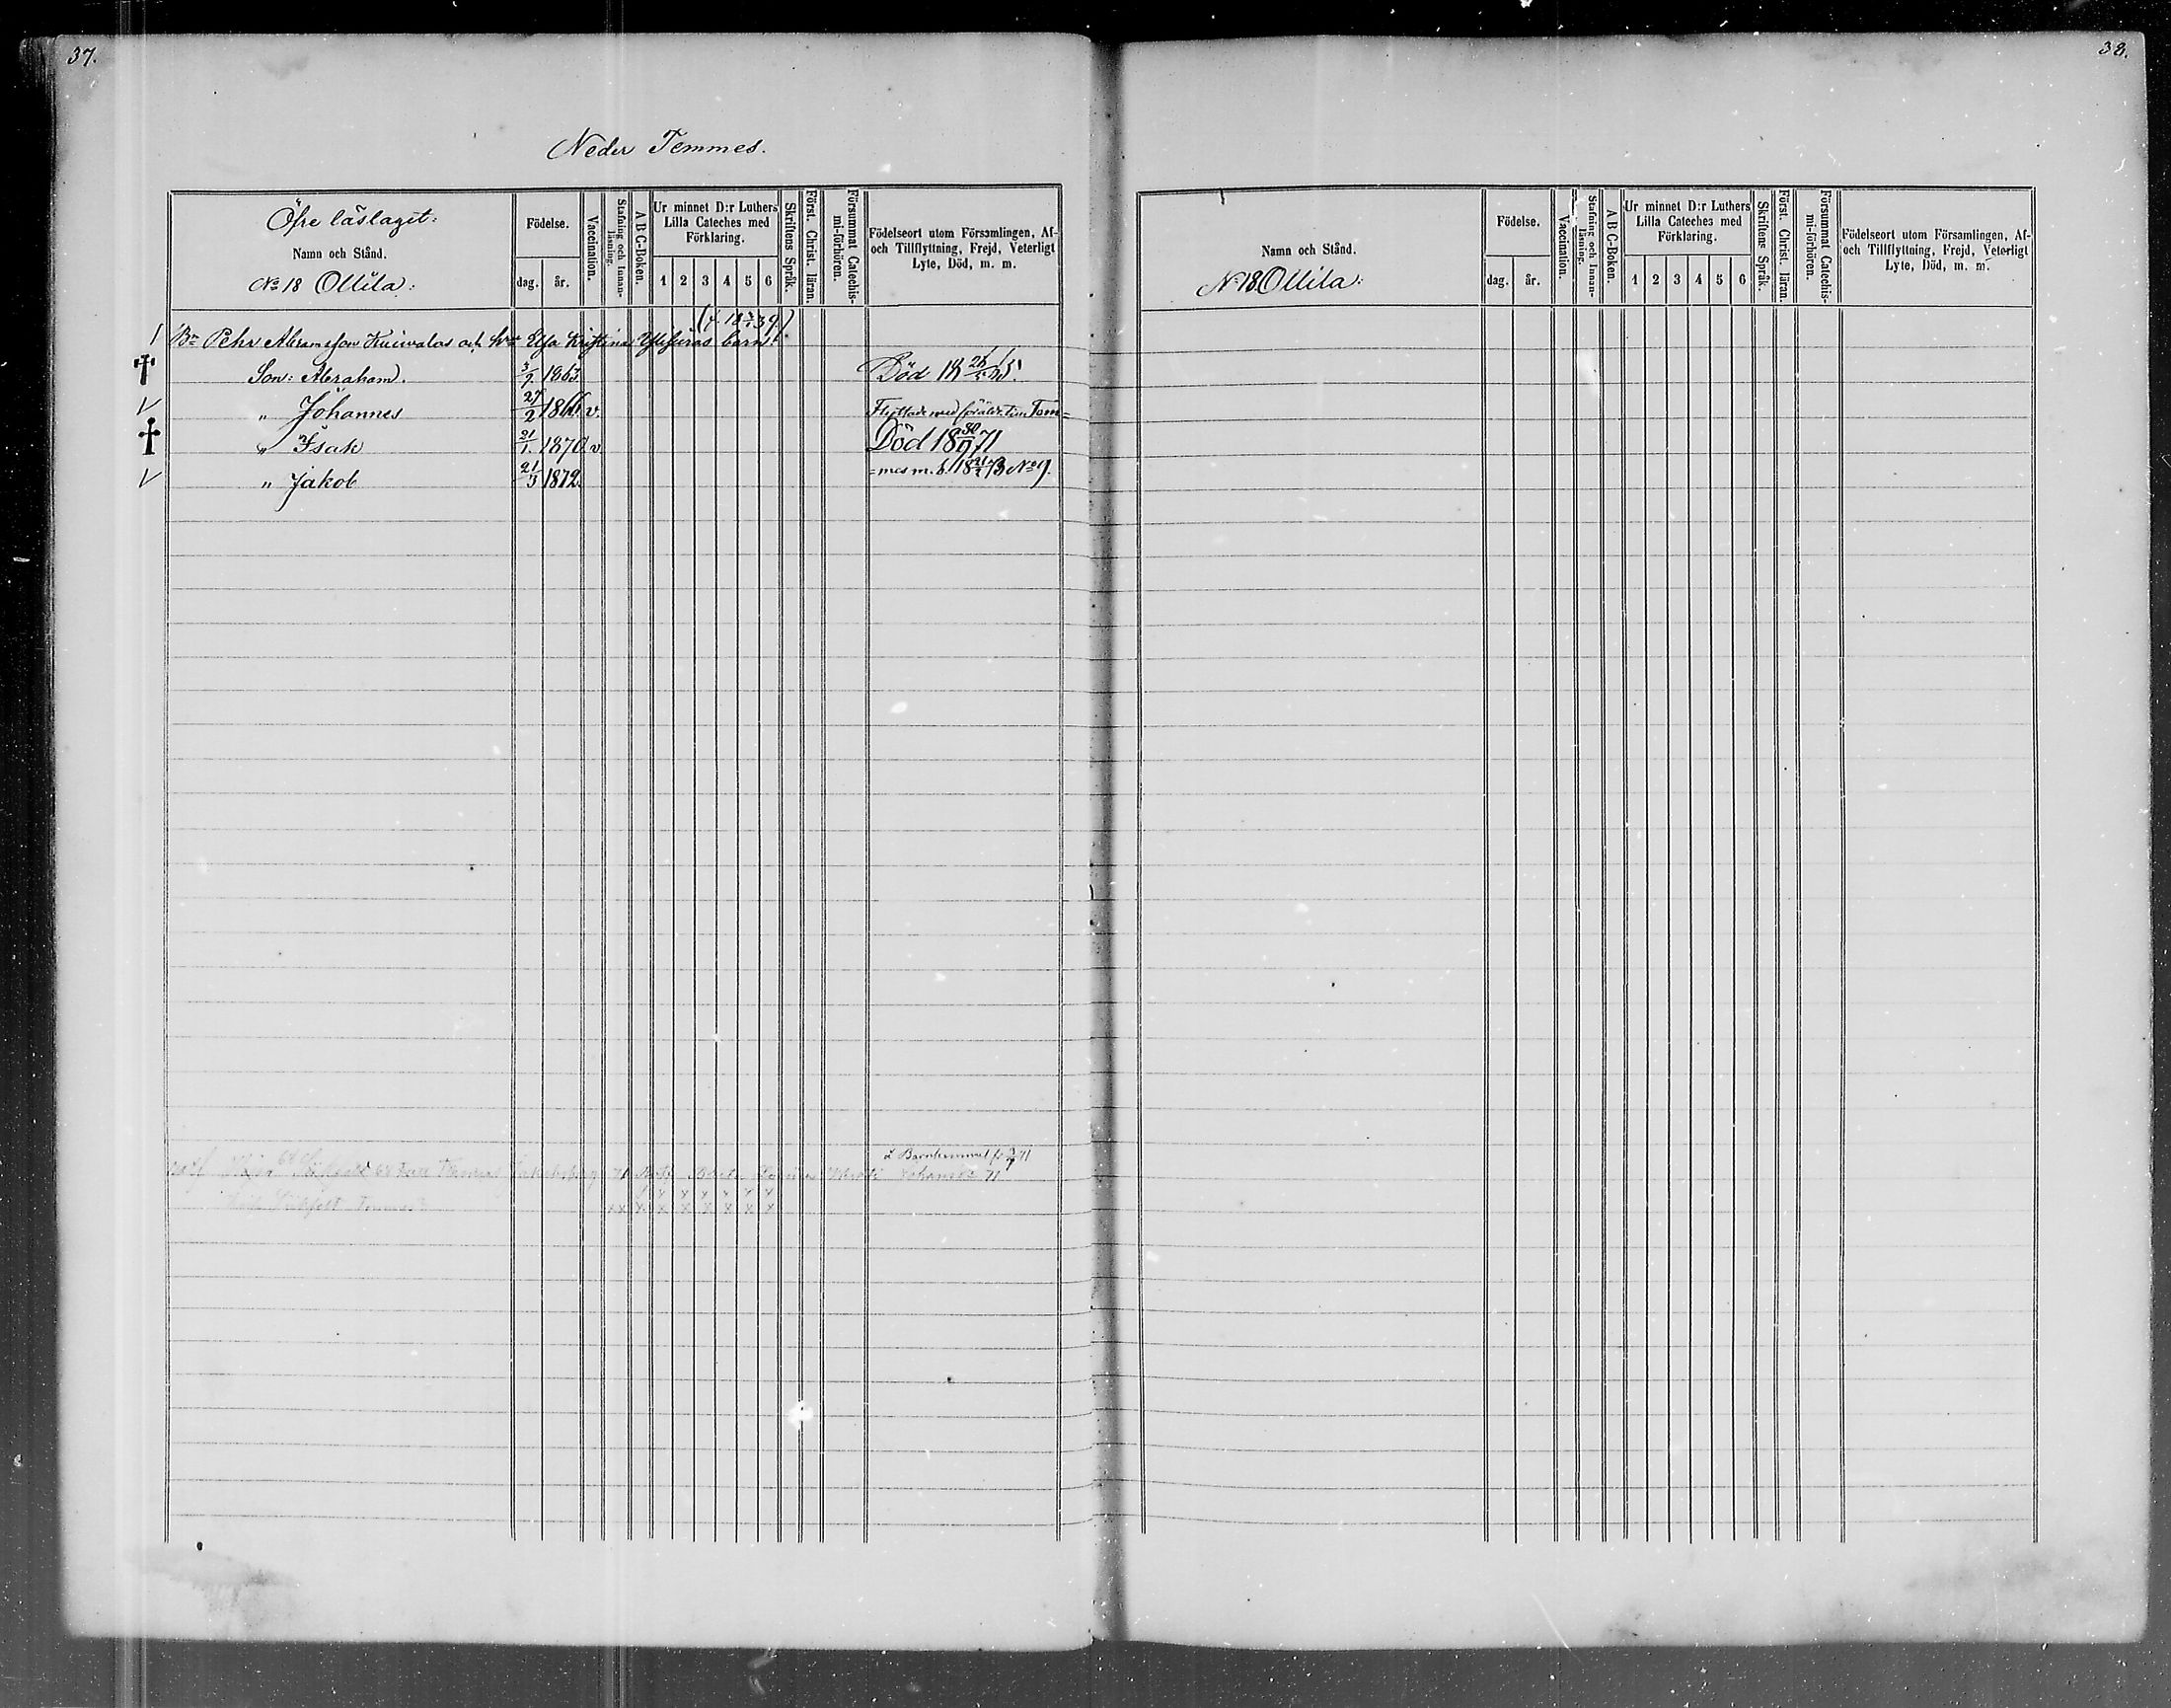 37.
Neder Temmes.
Öfre läslaget:
Namn och Stånd.
No 18 Ollila:
Födelse.
dag. år.
Vaccination.
Stafning och Innanläsning.
A B C-Boken.
Ur minnet D:r Luthers
Lilla Cateches med
Förklaring.
1 2 3 4 5 6
Skriftens Språk.
Först. Christ. läran.
Försummat Catechismi-förhören.
Födelseort utom Församlingen, Af-
och Tillflyttning, Frejd, Veterligt
Lyte, Död, m. m.
Bn Pehr Abramsson Kuiwalas och Elsa Kristina barn:
Son: Abraham. 3/9 1863. Död
" Johannes 27/2 1866. v. Flyttade med Tem=
" Isak 21/1. 1870. v Död 18 30/9 71
" Jakob 21/3 1872. =mes m. b. 18 73 No 9.
38.
Namn och Stånd.
No 18. Ollila:
Födelse.
dag. år.
Vaccination.
Stafning och Innanläsning.
A B C-Boken.
Ur minnet D:r Luthers
Lilla Cateches med
Förklaring.
1 2 3 4 5 6
Skriftens Språk.
Först. Christ. läran.
Försummat Catechismi-förhören.
Födelseort utom Församlingen, Af-
och Tillflyttning, Frejd, Veterligt
Lyte, Död, m. m.